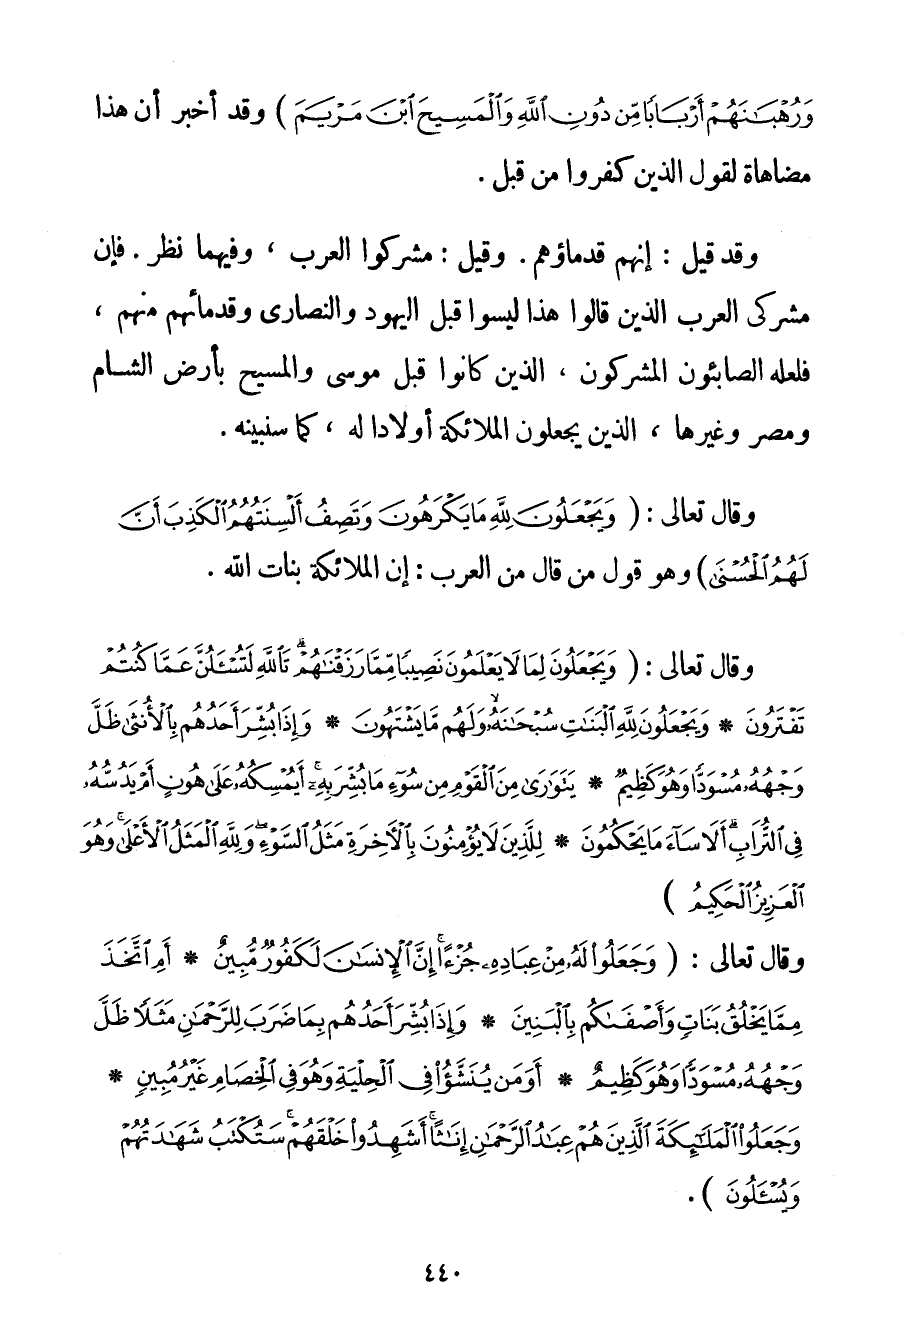 وَرُهْبَـٰنَهُمْ أَرْبَابًا مِّن دُونِ ٱللَّهِ وَٱلْمَسِيحَ ٱبْنَ مَرْيَمَ ) وقد أخبر أن هذا
مضاهاة لقول الذين كفروا من قبل .
وقد قيل : إنهم قدماؤهم . وقيل : مشركوا العرب ، وفيهما نظر . فإن
مشركى العرب الذين قالوا هذا ليسوا قبل اليهود والنصارى وقدمائهم منهم ،
فلعله الصابئون المشركون ، الذين كانوا قبل موسى والمسيح بأرض الشام
ومصر وغيرها ، الذين يجعلون الملائكة أولادا له ، كما سنبينه .
وقال تعالى : ( وَيَجْعَلُونَ لِلَّهِ مَا يَكْرَهُونَ وَتَصِفُ أَلْسِنَتُهُمُ ٱلْكَذِبَ أَنَّ
لَهُمُ ٱلْحُسْنَىٰ ) وهو قول من قال من العرب : إن الملائكة بنات الله .
وقال تعالى : ( وَيَجْعَلُونَ لِمَا لَا يَعْلَمُونَ نَصِيبًا مِّمَّا رَزَقْنَـٰهُمْ ۗ تَٱللَّهِ لَتُسْـَٔلُنَّ عَمَّا كُنتُمْ
تَفْتَرُونَ * وَيَجْعَلُونَ لِلَّهِ ٱلْبَنَـٰتِ سُبْحَـٰنَهُۥ ۙ وَلَهُم مَّا يَشْتَهُونَ * وَإِذَا بُشِّرَ أَحَدُهُم بِٱلْأُنثَىٰ ظَلَّ
وَجْهُهُۥ مُسْوَدًّا وَهُوَ كَظِيمٌ * يَتَوَٰرَىٰ مِنَ ٱلْقَوْمِ مِن سُوٓءِ مَا بُشِّرَ بِهِۦٓ ۚ أَيُمْسِكُهُۥ عَلَىٰ هُونٍ أَمْ يَدُسُّهُۥ
فِى ٱلتُّرَابِ ۗ أَلَا سَآءَ مَا يَحْكُمُونَ * لِلَّذِينَ لَا يُؤْمِنُونَ بِٱلْـَٔاخِرَةِ مَثَلُ ٱلسَّوْءِ ۖ وَلِلَّهِ ٱلْمَثَلُ ٱلْأَعْلَىٰ ۚ وَهُوَ
ٱلْعَزِيزُ ٱلْحَكِيمُ )
وقال تعالى : ( وَجَعَلُوا۟ لَهُۥ مِنْ عِبَادِهِۦ جُزْءًا ۚ إِنَّ ٱلْإِنسَـٰنَ لَكَفُورٌ مُّبِينٌ * أَمِ ٱتَّخَذَ
مِمَّا يَخْلُقُ بَنَاتٍ وَأَصْفَىٰكُم بِٱلْبَنِينَ * وَإِذَا بُشِّرَ أَحَدُهُم بِمَا ضَرَبَ لِلرَّحْمَـٰنِ مَثَلًا ظَلَّ
وَجْهُهُۥ مُسْوَدًّا وَهُوَ كَظِيمٌ * أَوَمَن يُنَشَّؤُا۟ فِى ٱلْحِلْيَةِ وَهُوَ فِى ٱلْخِصَامِ غَيْرُ مُبِينٍ *
وَجَعَلُوا۟ ٱلْمَلَـٰٓئِكَةَ ٱلَّذِينَ هُمْ عِبَـٰدُ ٱلرَّحْمَـٰنِ إِنَـٰثًا ۚ أَشَهِدُوا۟ خَلْقَهُمْ ۚ سَتُكْتَبُ شَهَـٰدَتُهُمْ
وَيُسْـَٔلُونَ ) .
٤٤٠